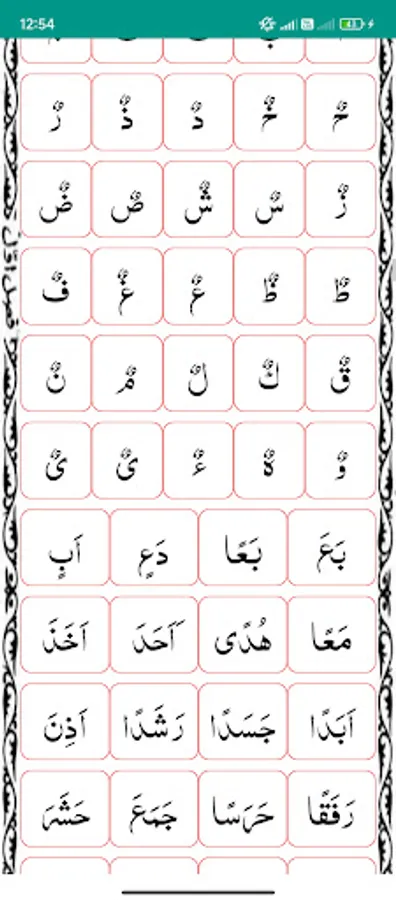 12:54
43
حٌ خٌ دٌ ذٌ رٌ
زٌ سٌ شٌ صٌ ضٌ
طٌ ظٌ عٌ غٌ فٌ
قٌ كٌ لٌ مٌ نٌ
وٌ هٌ ءٌ یٌ یٌ
بَعَ بَعًا دَعٍ اَبٍ
مَعًا هُدًی اَحَدَ اَخَذَ
اَبَدًا جَسَدًا رَشَدًا اَذِنَ
رَفَقًا حَرَسًا جَمَعَ حَشَرَ